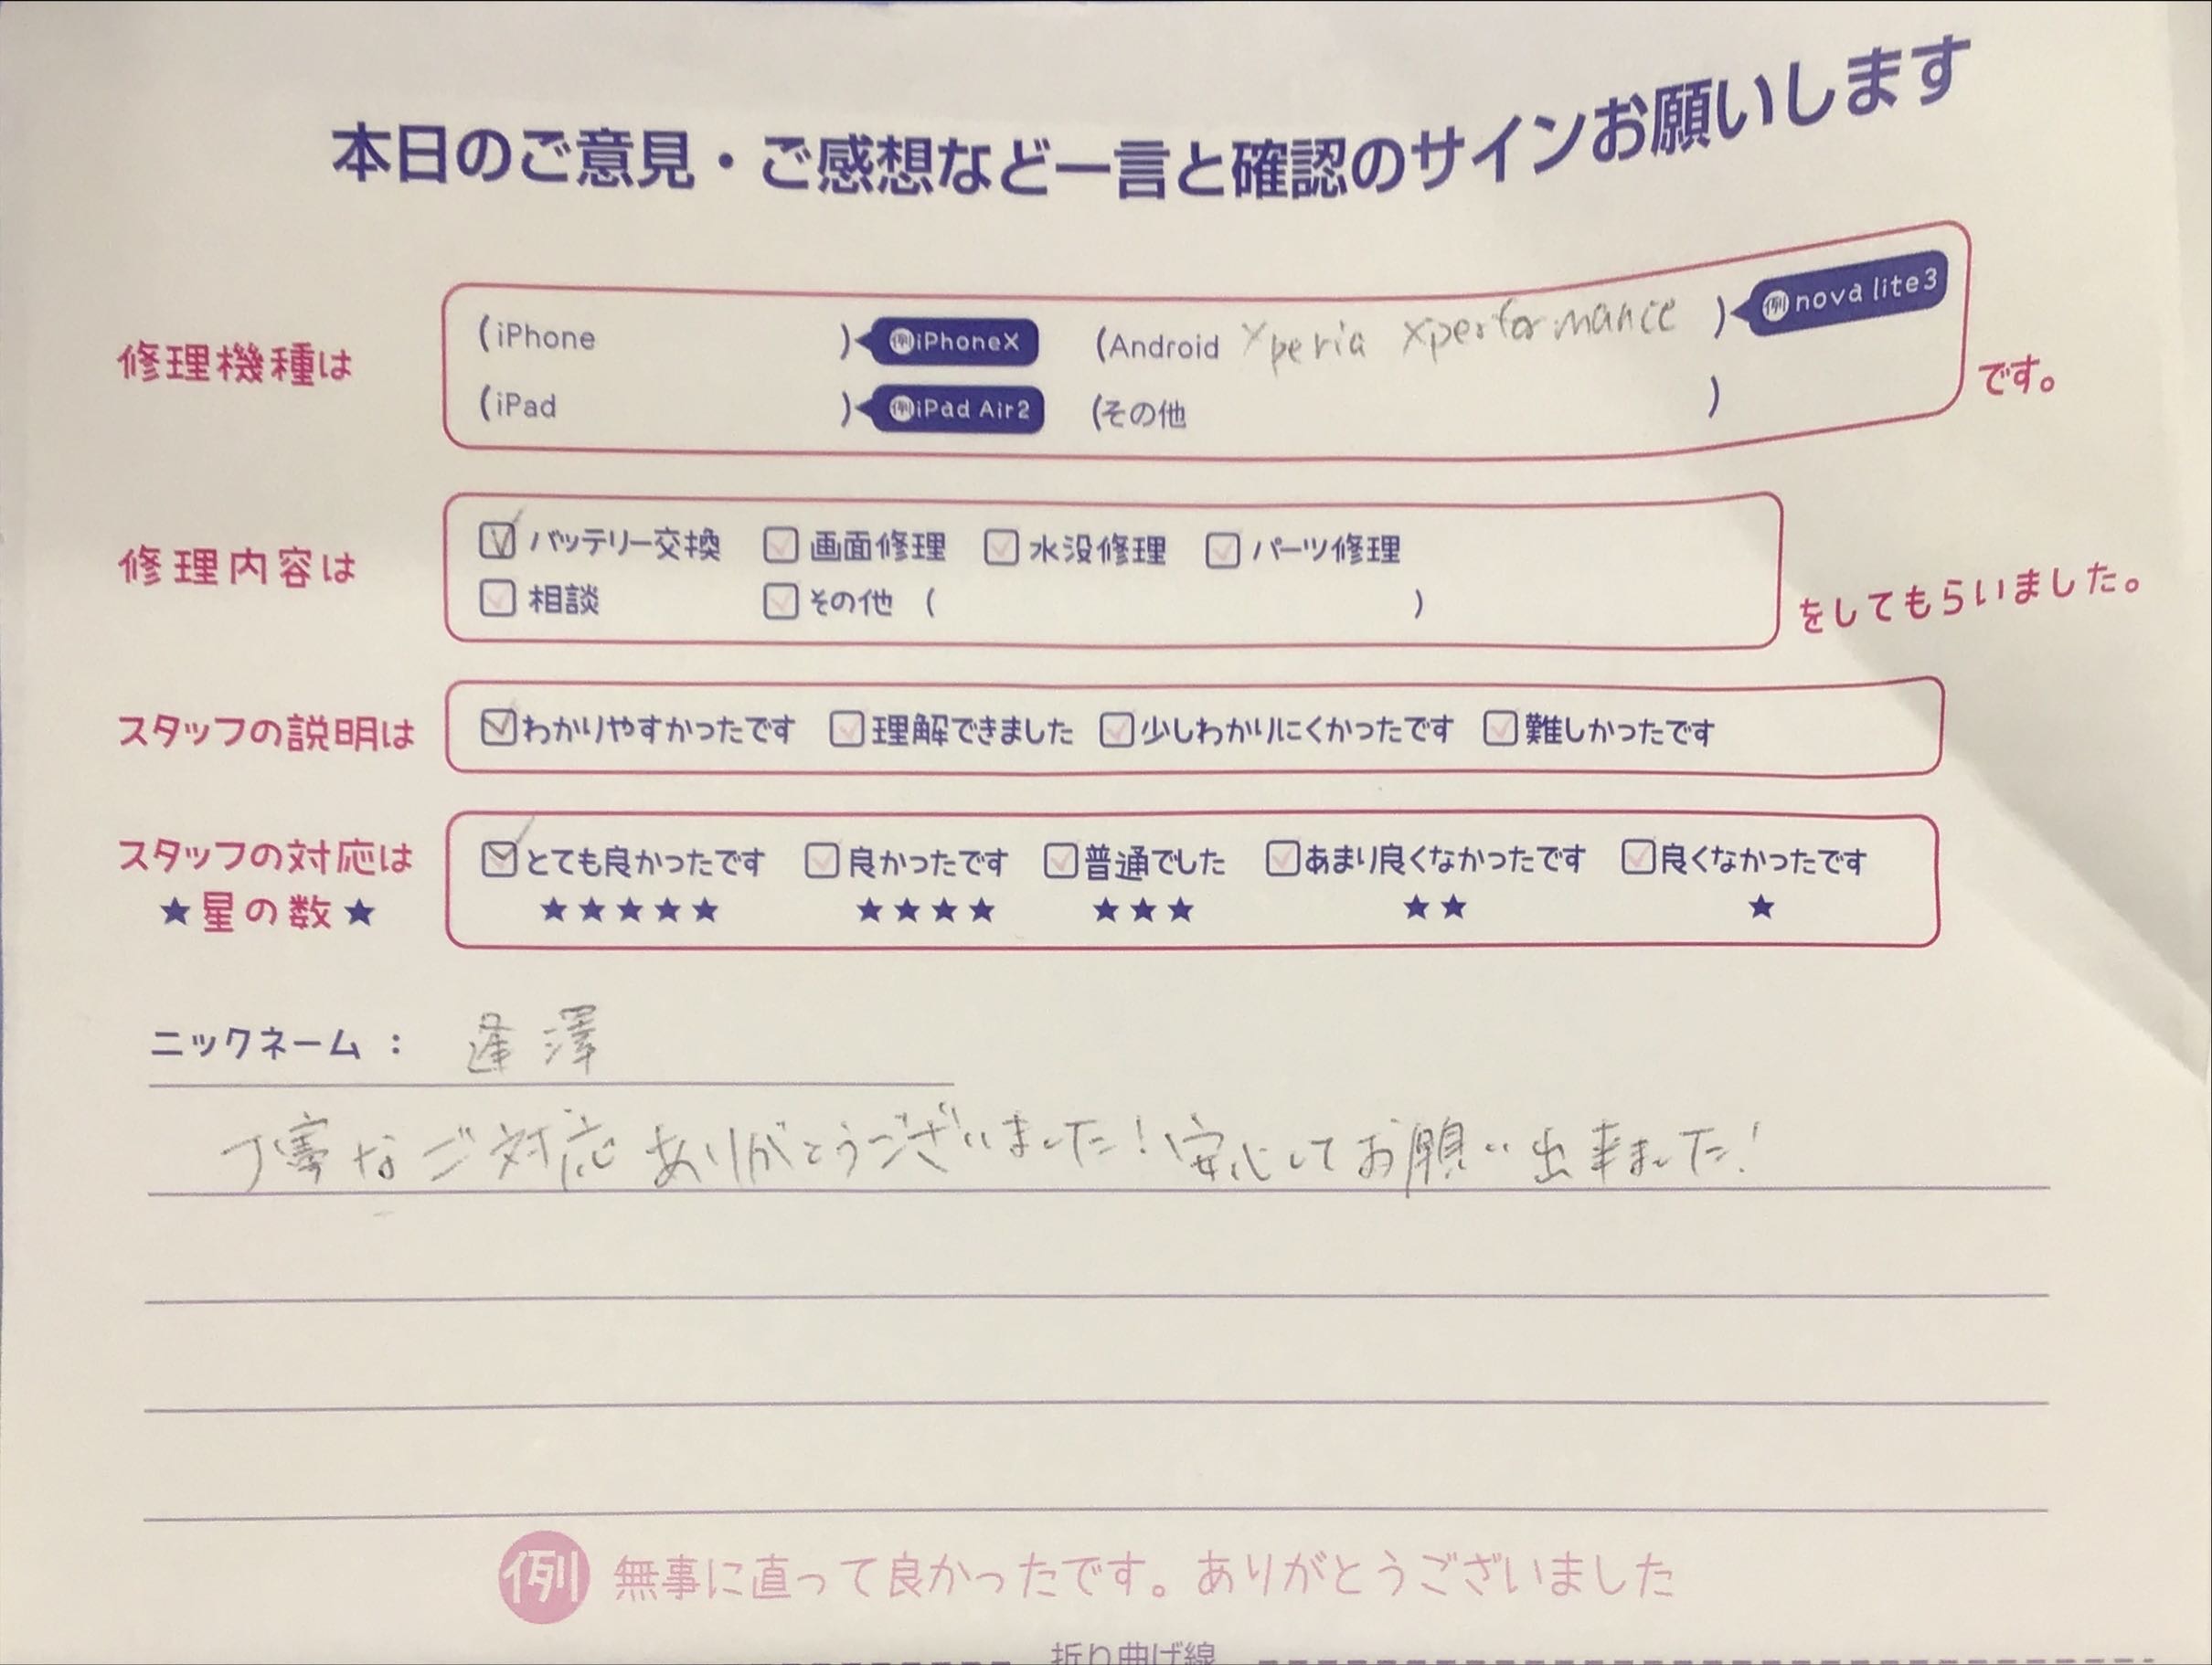 本日のご意見・ご感想など一言と確認のサインお願いします
修理機種は (iPhone ) 例iPhoneX (Android Xperia Xperformance ) 例nova lite3
(iPad ) 例iPad Air2 (その他 ) です。
修理内容は バッテリー交換 画面修理 水没修理 パーツ修理
相談 その他 ( ) をしてもらいました。
スタッフの説明は わかりやすかったです 理解できました 少しわかりにくかったです 難しかったです
スタッフの対応は とても良かったです 良かったです 普通でした あまり良くなかったです 良くなかったです
★星の数★ ★★★★★ ★★★★ ★★★ ★★ ★
ニックネーム : 逢澤
丁寧なご対応ありがとうございました!安心してお願い出来ました!
例 無事に直って良かったです。ありがとうございました
折り曲げ線